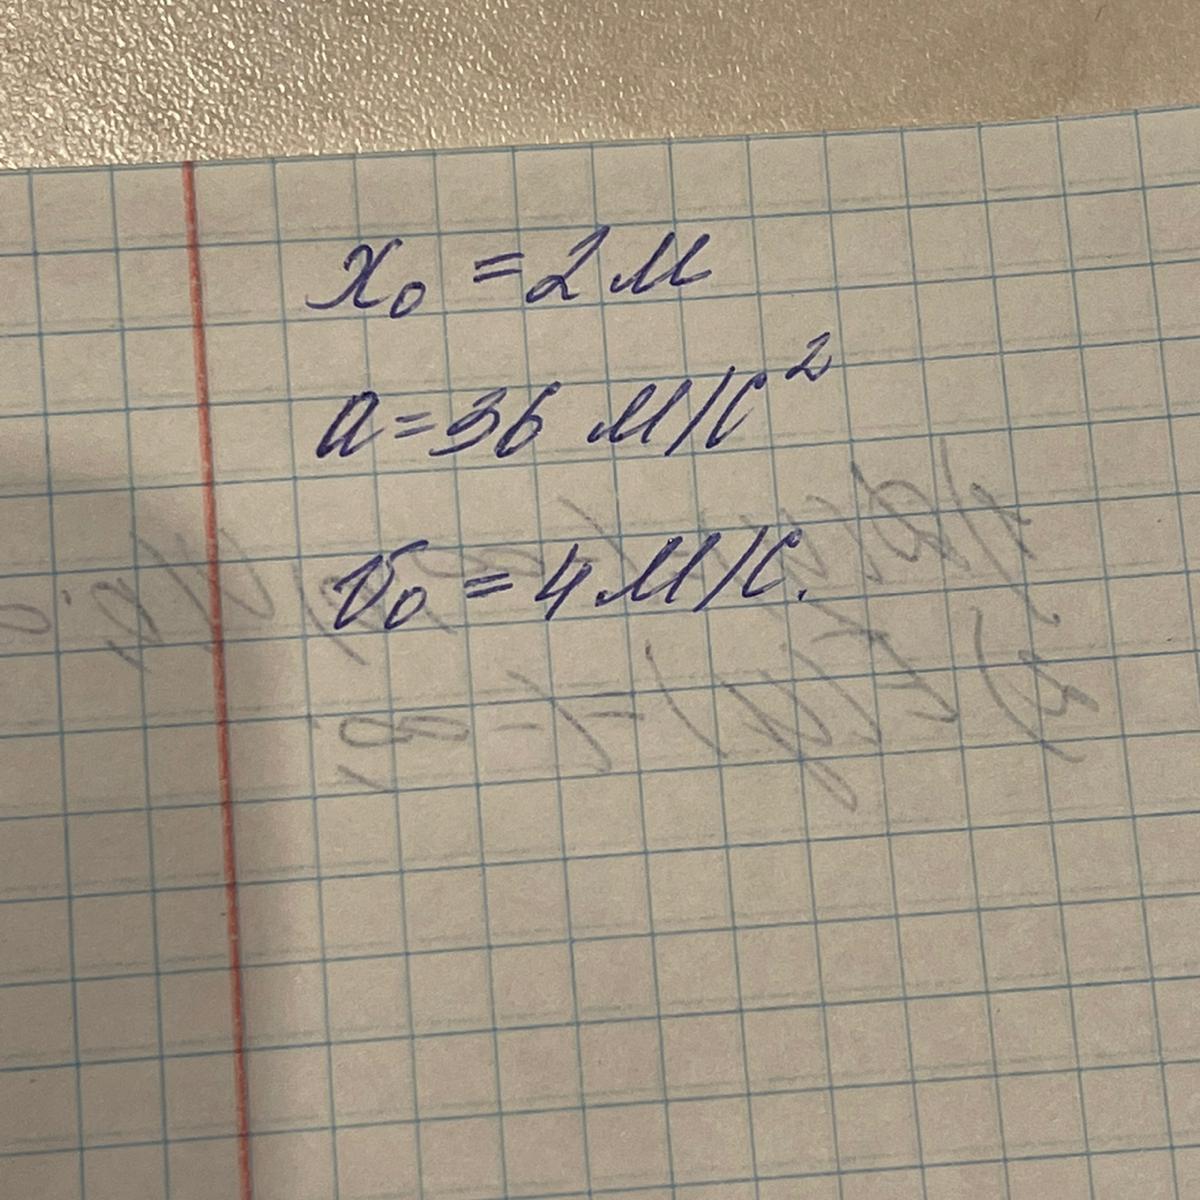 x₀ = 2 м
a = 36 м/с²
v₀ = 4 м/с.